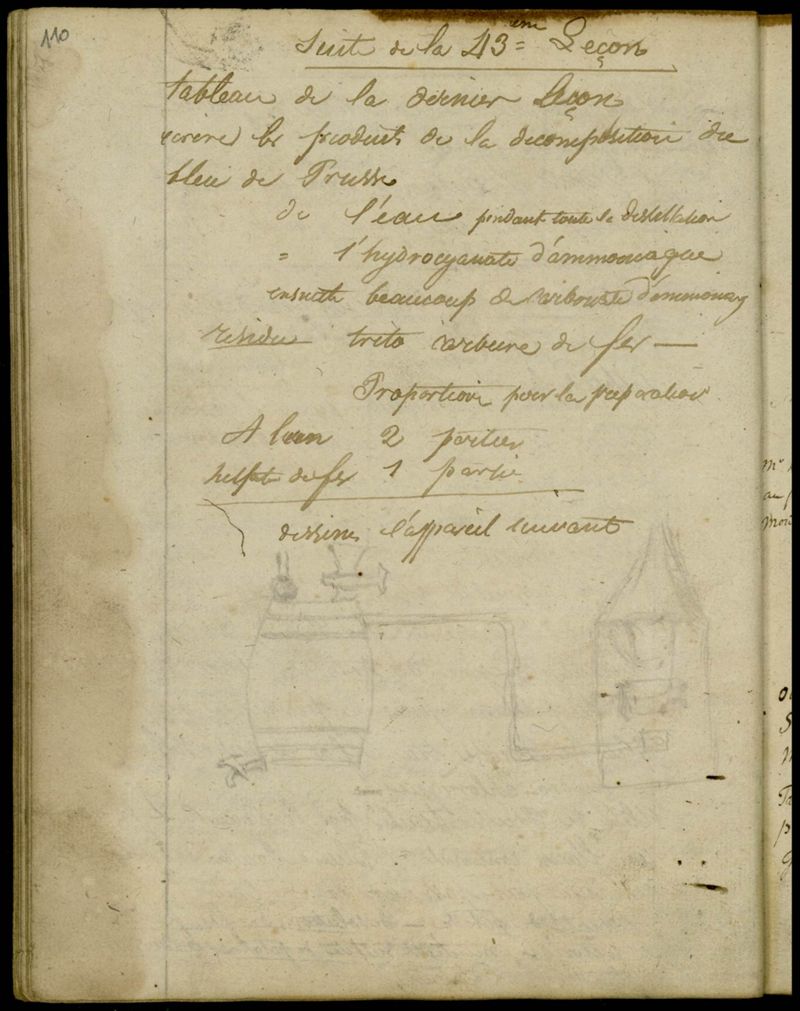 110
Suite de la 43ème Leçon
tableau de la dernier Leçon
ecrire les produits de la decomposition du
bleu de Prusse
de l'eau pendant toute la distillation
= l'hydrocyanate d'ammoniaque
ensuite beaucoup de carbonate d'ammoniaq
residu trito carbure de fer —
Proportion pour la preparation
Alun 2 parties
sulfate de fer 1 partie
dessiner l'appareil suivant